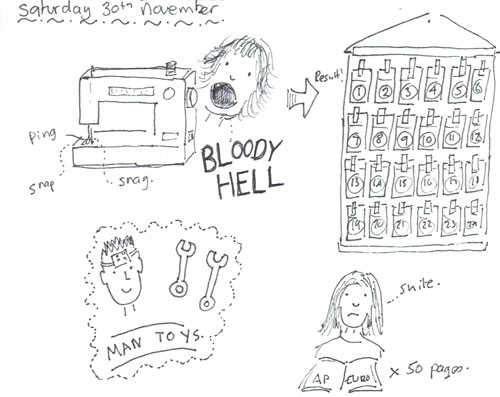 Saturday 30th November
Result!
1 2 3 4 5 6
7 8 9 10 11 12
13 14 15 16 17 18
19 20 21 22 23 24
ping
snap
snag.
BLOODY
HELL
MAN TOYS.
AP EURO x 50 pages.